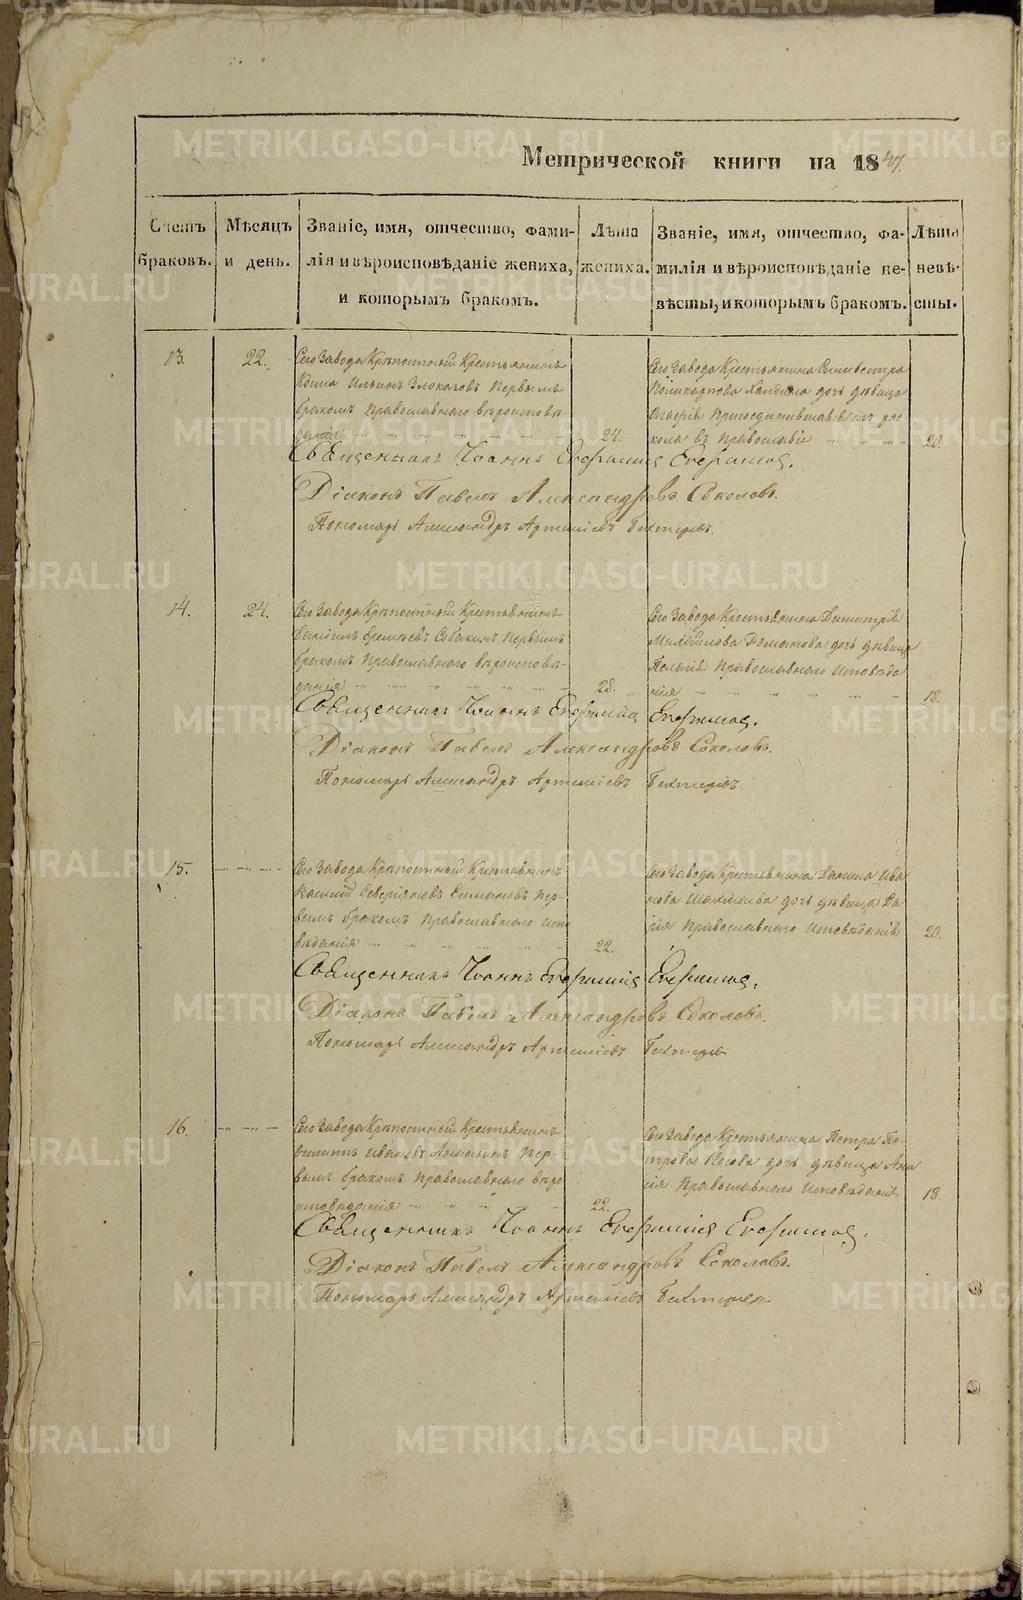 METRIKI.GASO-URAL.RU
Метрической книги на 1847.
Счетъ браковъ.
Мѣсяцъ и день.
Званіе, имя, отчество, фами-
лія и вѣроисповѣданіе жениха,
и которымъ бракомъ.
Лѣта жениха.
Званіе, имя, отчество, фа-
милія и вѣроисповѣданіе не-
вѣсты, и которымъ бракомъ.
Лѣта невѣ-
сты.
13.
22.
Сего Завода Крѣпостный Крестьянинъ
Козма Ильинъ Злоказовъ Первымъ
бракомъ Православнаго вѣроисповѣ-
данія
24.
Сего Завода Крестьянина Сильвестра
Поликарпова дочь дѣвица
Присоединившаяся изъ рас-
кола въ Православіе
20.
Священникъ Іоаннъ
Діаконъ Павелъ Александровъ Соколовъ.
Пономарь Александръ Артеміевъ
14.
24.
Сего Завода Крѣпостный Крестьянинъ
Собакинъ Первымъ
бракомъ Православнаго вѣроисповѣ-
данія
28.
Сего Завода Крестьянина Димитрія
Михайлова дочь дѣвица
Православнаго Исповѣда
нія
18.
Священникъ Іоаннъ
Діаконъ Павелъ Александровъ Соколовъ.
Пономарь Александръ Артеміевъ
15.
Сего Завода Крѣпостный Крестьянинъ
Севергяновъ Симановъ Пер-
вымъ бракомъ Православнаго испо
вѣданія
22.
Сего Завода Крестьянина Данила Ива
нова дочь дѣвица Да
рія Православнаго Исповѣданія
20.
Священникъ Іоаннъ
Діаконъ Павелъ Александровъ Соколовъ.
Пономарь Александръ Артеміевъ
16.
Сего Завода Крѣпостный Крестьянинъ
Филиппъ Ивановъ Ананьинъ Пер-
вымъ бракомъ Православнаго вѣро
исповѣданія
22.
Сего Завода Крестьянина Петра Пе-
трова Носова дочь дѣвица
Православнаго Исповѣданія
18.
Священникъ Іоаннъ
Діаконъ Павелъ Александровъ Соколовъ.
Пономарь Александръ Артеміевъ